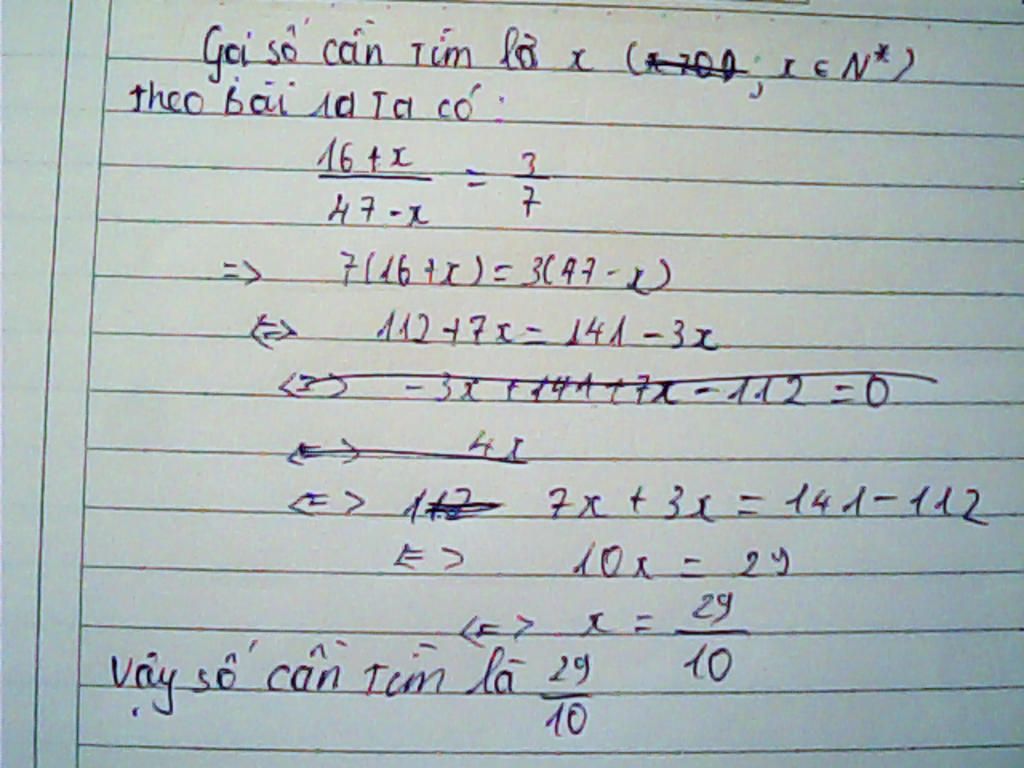 Gọi số cần tìm là x (x>0; x ∈ N*)
theo bài ra ta có:
16+x / 47-x = 3/7
=> 7(16+x) = 3(47-x)
<=> 112+7x = 141-3x
<=> -3x+141+7x-112=0
<=> 4x
<=> 112 7x+3x=141-112
<=> 10x = 29
<=> x = 29/10
Vậy số cần tìm là 29/10